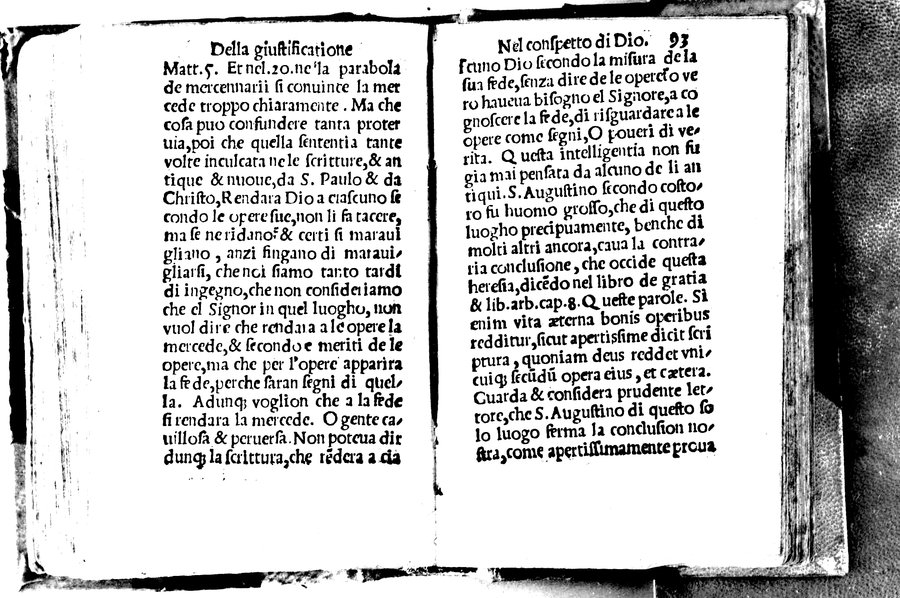 Della giuſtificatione
Matt.5. Et nel.20.ne'la parabola
de mercennarii ſi conuince la mer
cede troppo chiaramente. Ma che
coſa puo confundere tanta proter
uia, poi che quella ſententia tante
volte inculcata ne le ſcritture, & an
tique & nuoue, da S. Paulo & da
Chriſto, Rendara Dio a ciaſcuno ſe
condo le opere ſue, non li fa tacere,
ma ſe ne ridano? & certi ſi maraui
gliano, anzi fingano di maraui⸗
gliarſi, che noi ſiamo tanto tardi
di ingegno, che non conſideriamo
che el Signor in quel luogho, non
vuol dire che rendara a le opere la
mercede, & ſecondo e meriti de le
opere, ma che per l'opere apparira
la fede, perche ſaran ſegni di quel⸗
la. Adunqꝫ voglion che a la fede
ſi rendara la mercede. O gente ca⸗
uilloſa & peruerſa. Non poteua dir
dunqꝫ la ſcrittura, che rēdera a cia
Nel conſpetto di Dio. 93
ſcuno Dio ſecondo la miſura de la
ſua fede, ſenza dire de le opere? o ve
ro haueua biſogno el Signore, a co
gnoſcere la fede, di riſguardare a le
opere come ſegni, O poueri di ve⸗
rita. Queſta intelligentia non fu
gia mai penſata da alcuno de li an
tiqui. S. Auguſtino ſecondo coſto⸗
ro fu huomo groſſo, che di queſto
luogho precipuamente, benche di
molti altri ancora, caua la contra⸗
ria concluſione, che occide queſta
hereſia, dicēdo nel libro de gratia
& lib.arb.cap.8. Queſte parole. Si
enim vita æterna bonis operibus
redditur, ſicut apertiſsime dicit ſcri
ptura, quoniam deus reddet vni⸗
cuiqꝫ ſecūdū opera eius, et cætera.
Guarda & conſidera prudente let⸗
tore, che S. Auguſtino di queſto ſo
lo luogo ferma la concluſion no⸗
ſtra, come apertiſſimamente proua